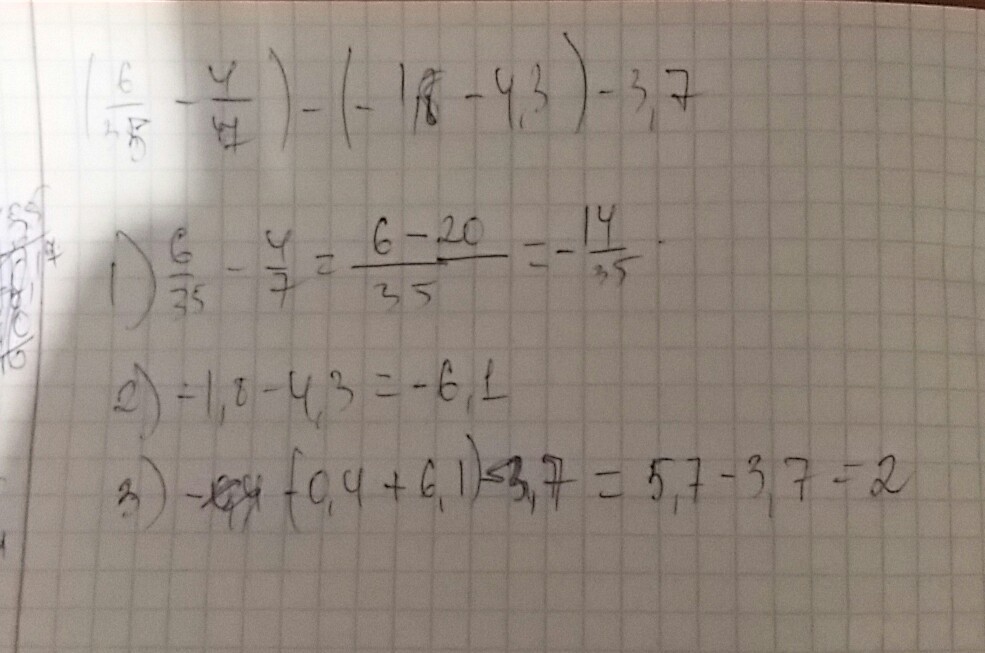 (6/35 - 4/7) - (-1,8 - 4,3) - 3,7
1) 6/35 - 4/7 = 6 - 20/35 = - 14/35
2) -1,8 - 4,3 = -6,1
3) (-0,4 + 6,1) - 3,7 = 5,7 - 3,7 = 2